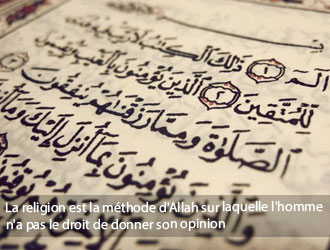 الٓمٓ ١ ذَٰلِكَ ٱلْكِتَٰبُ لَا رَيْبَ
لِّلْمُتَّقِينَ ٢ ٱلَّذِينَ يُؤْمِنُونَ بِٱلْغَيْبِ وَيُقِيمُونَ
ٱلصَّلَوٰةَ وَمِمَّا رَزَقْنَٰهُمْ يُنفِقُونَ
يُؤْمِنُونَ بِمَآ أُنزِلَ إِلَيْكَ وَمَآ
La religion est la méthode d'Allah sur laquelle l'homme
n'a pas le droit de donner son opinion